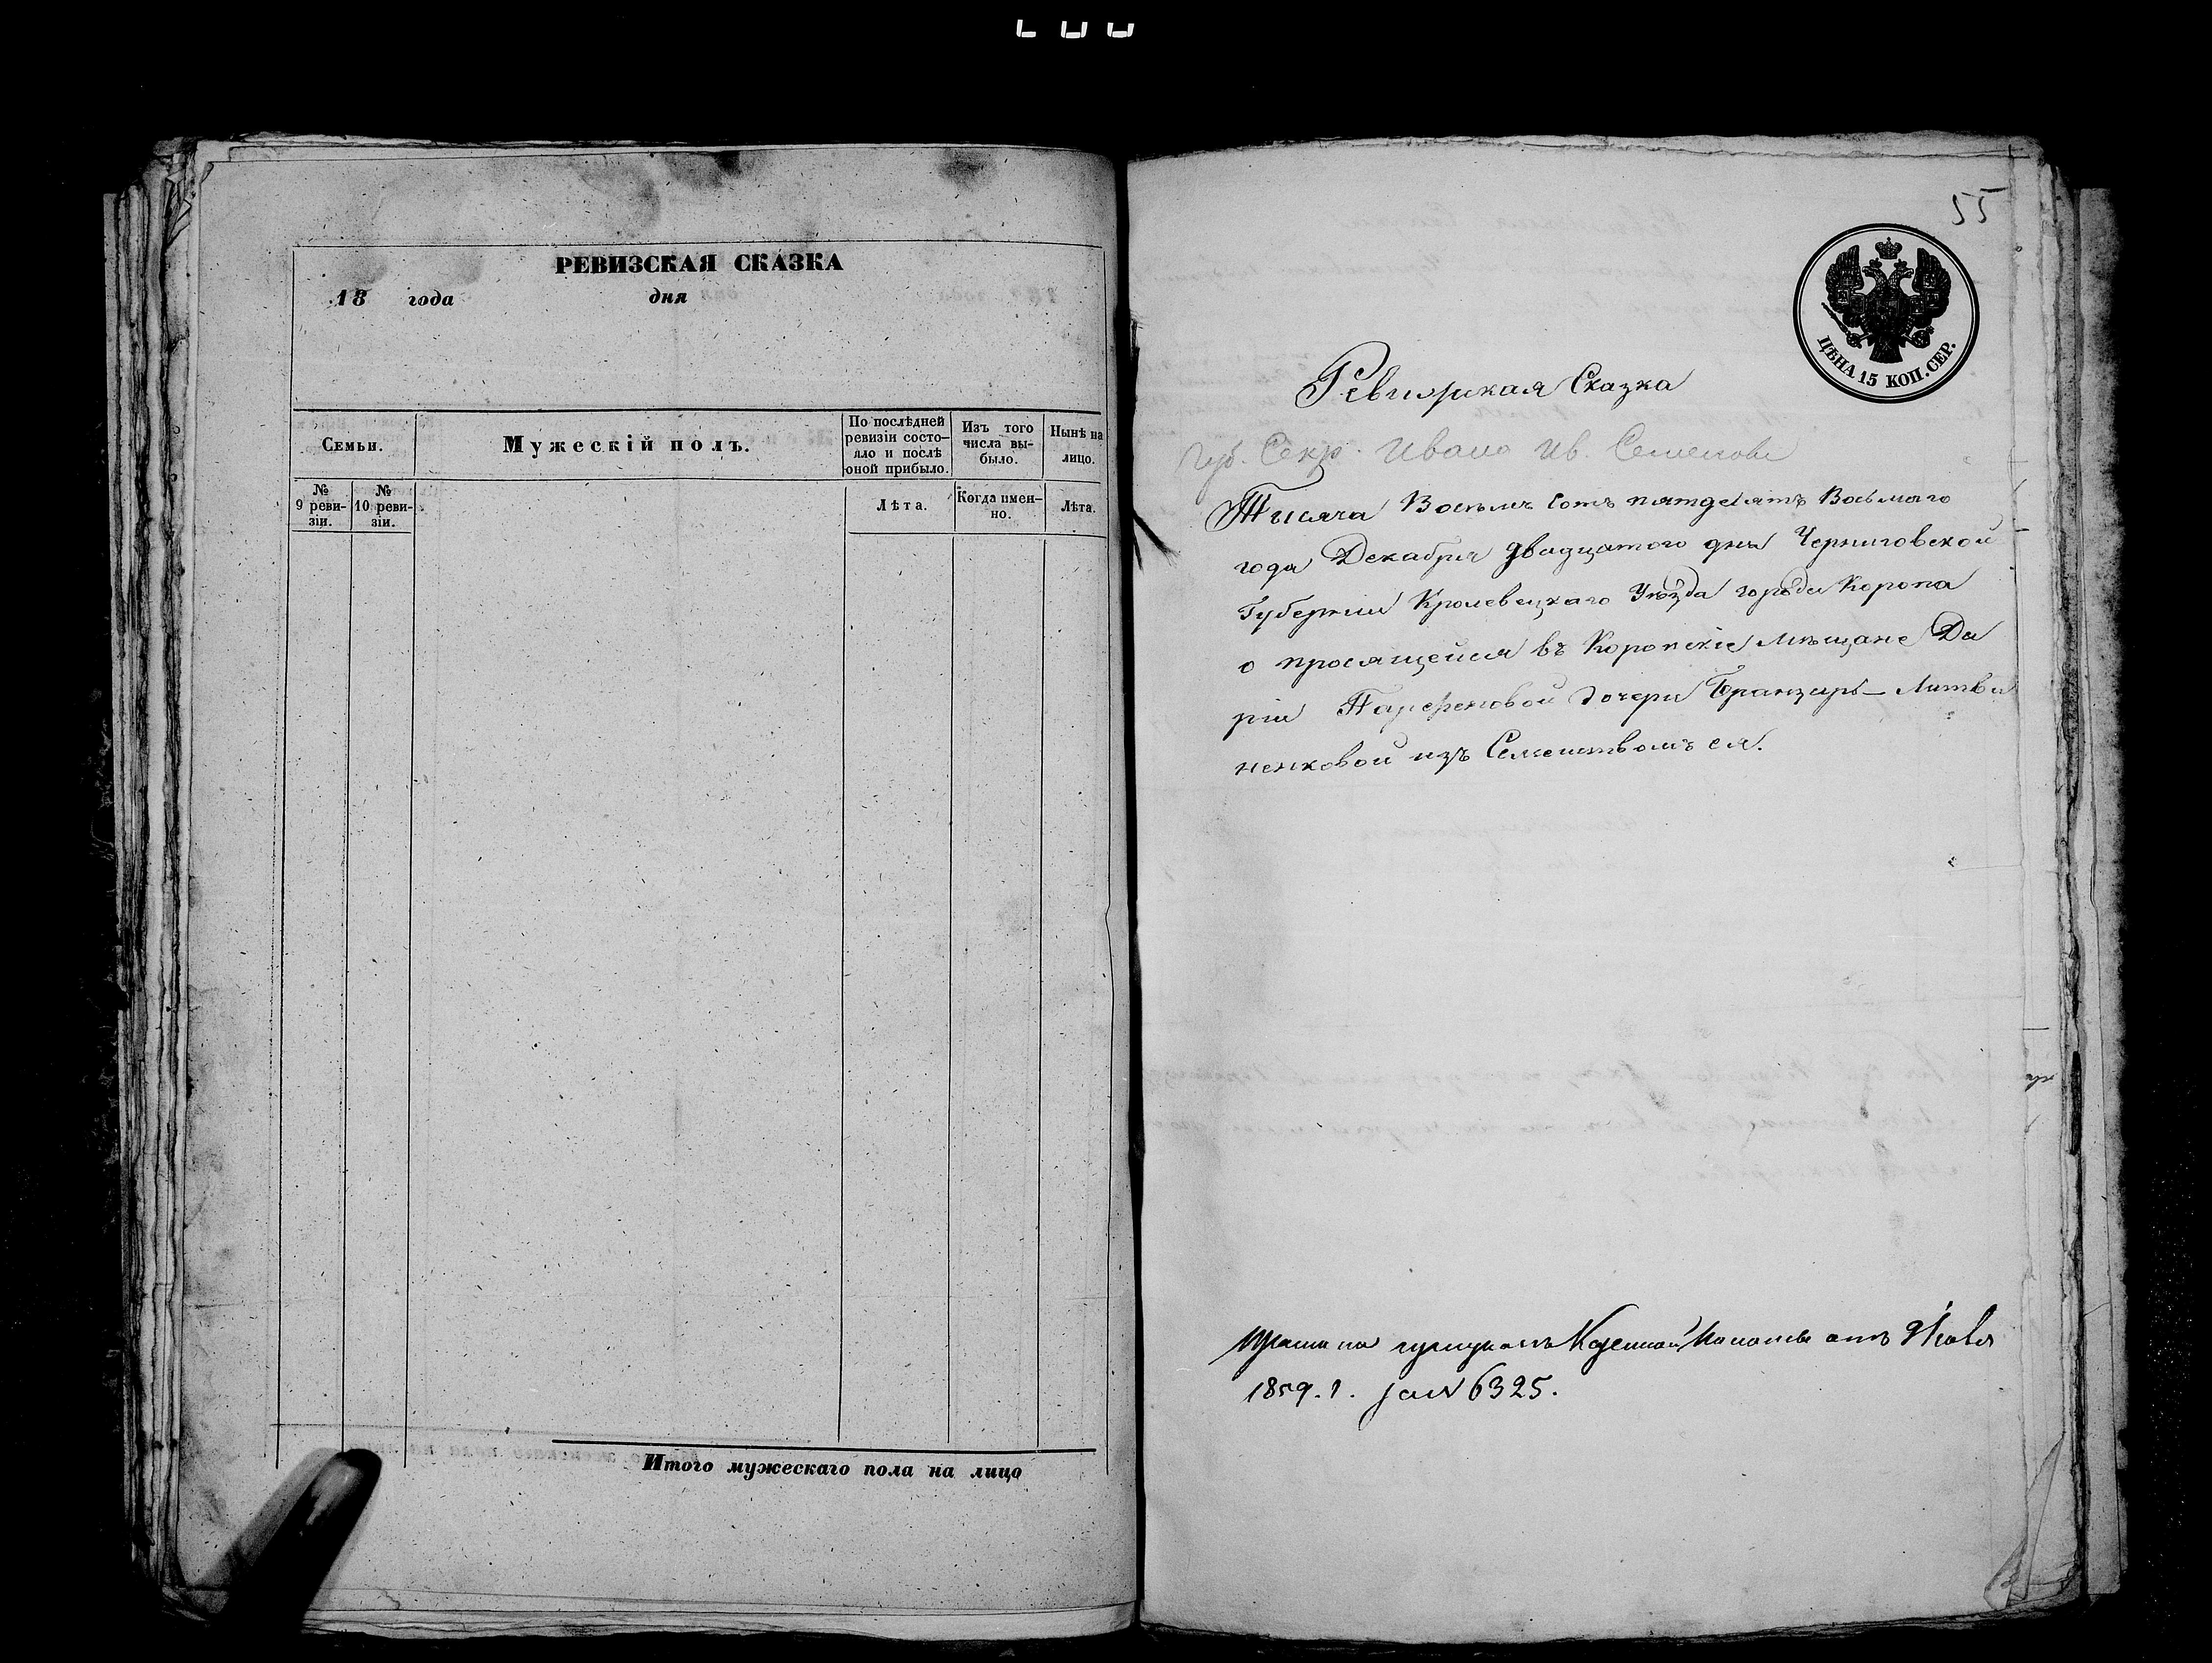 РЕВИЗСКАЯ СКАЗКА
18 года дня
Семьи.
Мужескій полъ.
По послѣдней ревизіи состо-
яло и послѣ оной прибыло.
Изъ того числа вы-
было.
Нынѣ на лицо.
№ 9 реви-
зіи.
№ 10 реви-
зіи.
Лѣта.
Когда имен-
но.
Лѣта.
Итого мужескаго пола на лицо
55
ЦѢНА 15 КОП. СЕР.
Ревизская Сказка
Губ. Секр. Ивана Ив. Семенова
Тисяча Восемъ сотъ пятдесятъ Восьмаго
года Декабря двадцатого дня Черниговской
Губерніи Кролевецкаго Уѣзда города Коропа
о просящейся въ Коропскіе Мѣщане Да
ріи Парфеновой дочери Литви
ненковой изъ Семействомъ ея.
Казенной Палаты отъ
1859. г. за № 6325.